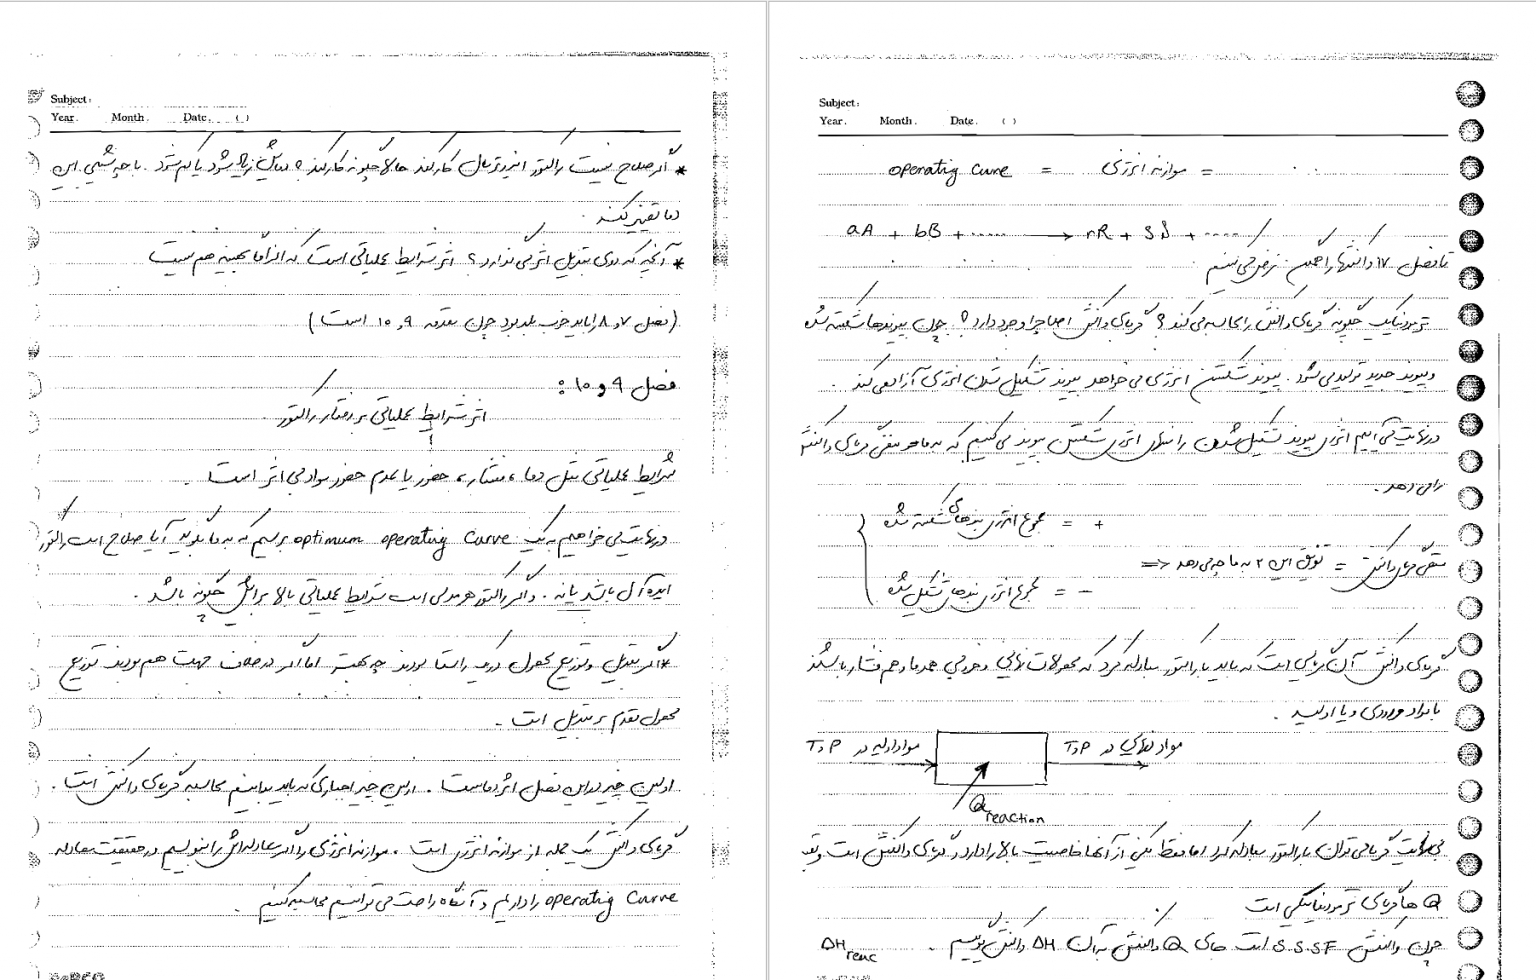 Subject:
Year. Month. Date. ( )
* اگر صلاح نیست راکتور ایزوترمال کار کند حالا چگونه کار کند؟ دمایش زیاد شود یا کم شود. با چه شیبی این
دما تغییر کند.
* آنچه که روی تبدیل اثر می گذارد؟ اثر شرایط عملیاتی است که الزاماً بهینه هم نیست
(فصل ۷ و ۸ را باید خوب بلد بود چون مقدمه ۹ و ۱۰ است)
فصل ۹ و ۱۰:
اثر شرایط عملیاتی بر رفتار راکتور.
شرایط عملیاتی مثل دما، فشار، حضور یا عدم حضور مواد بی اثر است.
در نهایت می خواهیم به یک optimum operating Curve برسیم که به ما بگوید آیا صلاح است راکتور
ایده آل باشد یا نه. و اگر راکتور هر مدلی است شرایط عملیاتی بالا برایش چگونه باشد.
* اگر تبدیل و توزیع محصول در یک راستا بودند چه بهتر اما اگر در خلاف جهت هم بودند توزیع
محصول مقدم بر تبدیل است.
اولین چیز در این فصل اثر دماست. اولین چیز اجباری که باید بدانیم محاسبه گرمای واکنش است.
گرمای واکنش یک جمله از موازنه انرژی است. موازنه انرژی را اگر معادله اش را بنویسیم در حقیقت معادله
operating Curve را داریم و آنگاه راحت می توانیم محاسبه کنیم.
Subject:
Year. Month. Date. ( )
operating Curve = موازنه انرژی =
aA + bB + ...... → rR + sS + .....
تا فصل ۱۷ دانسیته را فرض می کنیم
ترمودینامیک چگونه گرمای واکنش را محاسبه می کند؟ گرمای واکنش اصلا چرا وجود دارد؟ چون پیوندها شکسته شده
و پیوند جدید تولید می شود. پیوند شکستن انرژی می خواهد پیوند تشکیل شدن انرژی آزاد می کند.
در نهایت می آییم انرژی پیوند تشکیل شدن را منهای انرژی شکستن پیوند می کنیم که به ما منفی گرمای واکنش
را می دهد.
مجموع انرژی بندهای شکسته شده = +
منفی گرمای واکنش = تفریق این ۲ به ما چه می دهد <=
مجموع انرژی بندهای تشکیل شده = -
گرمای واکنش آن گرمایی است که باید با راکتور مبادله کرد که محصولات نهایی و خروجی همدما و هم فشار باشند
با مواد ورودی و یا اولیه.
مواد اولیه در T و P
مواد نهایی در T و P
Q reaction
بی نهایت گرما می توان با راکتور مبادله کرد اما فقط یکی از آنها خاصیت بالا را دارد و گرمای واکنش است و بقیه
Q ها گرمای ترمودینامیکی است
چون واکنش S.S.S.F است بجای Q واکنش به آن ΔH واکنش می گوییم. ΔH reac